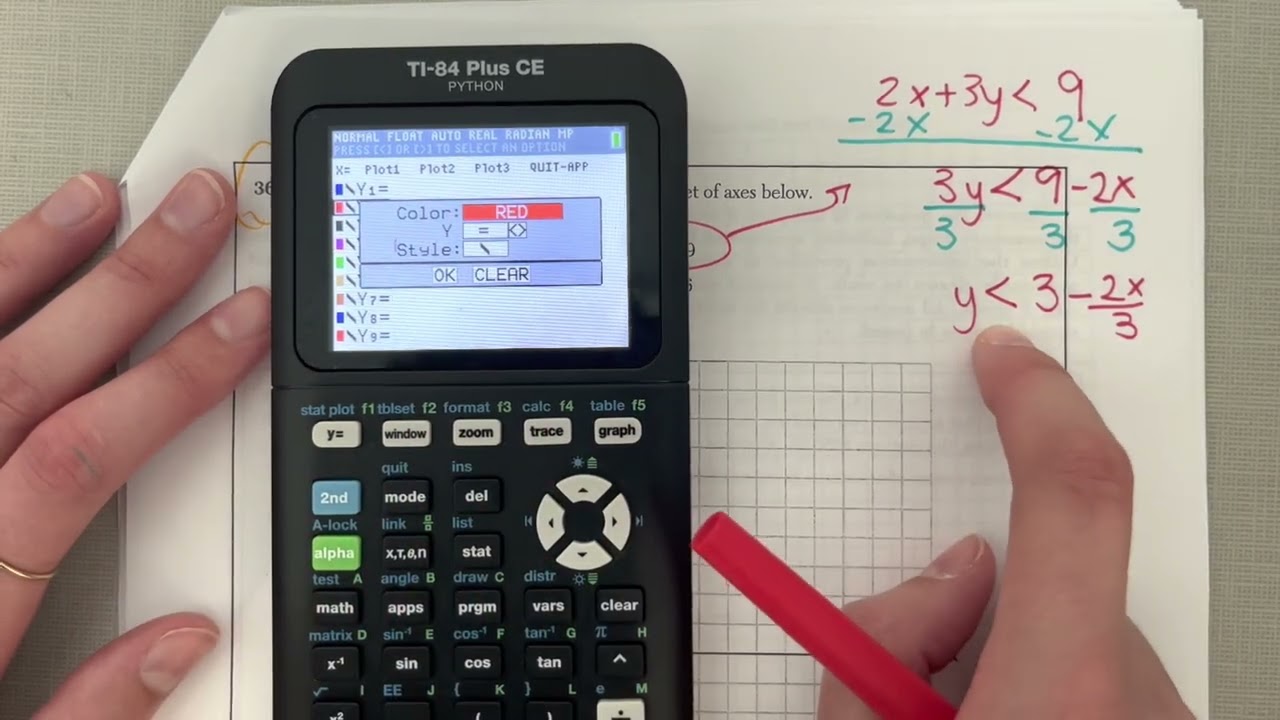 TI-84 Plus CE
PYTHON
NORMAL FLOAT AUTO REAL RADIAN MP
PRESS [<] OR [>] TO SELECT AN OPTION
X= Plot1 Plot2 Plot3 QUIT-APP
Y1=
Color: RED
Y = <>
Style: \
OK CLEAR
Y7=
Y8=
Y9=
stat plot f1 tblset f2 format f3 calc f4 table f5
y= window zoom trace graph
quit ins
2nd mode del
A-lock link list
alpha x,T,θ,n stat
test A angle B draw C distr
math apps prgm vars clear
matrix D sin⁻¹ E cos⁻¹ F tan⁻¹ G π H
x⁻¹ sin cos tan ^
√ I EE J { K } L e M
x² , ( ) ÷
36
et of axes below.
9
2x+3y< 9
-2x -2x
3y < 9 -2x
3 3 3
y < 3 - 2x
3